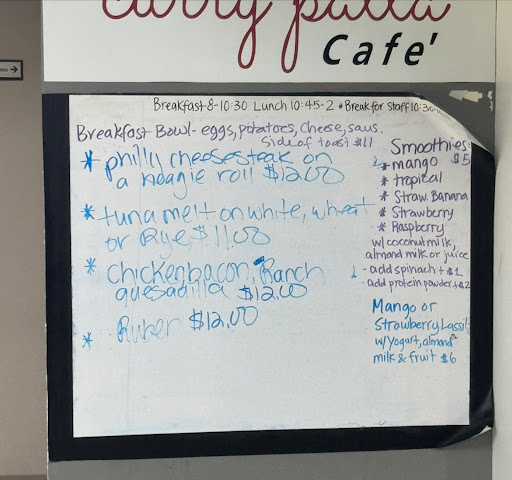 curry patta
Cafe'
Breakfast 8-10:30 Lunch 10:45-2 *Break for Staff 10:30
Breakfast Bowl- eggs, potatoes, cheese, saus.
side of toast $11
* philly cheesesteak on
a hoagie roll $12.00
* tuna melt on white, wheat
or Rye $11.00
* Chicken, bacon, Ranch
quesadilla $12.00
* Ruben $12.00
Smoothies:
* mango $5
* tropical
* Straw. Banana
* Strawberry
* Raspberry
w/ coconut milk,
almond milk or juice
- add spinach + $1
- add protein powder + $2
Mango or
Strawberry Lassi
w/ Yogurt, almond
milk & fruit $6